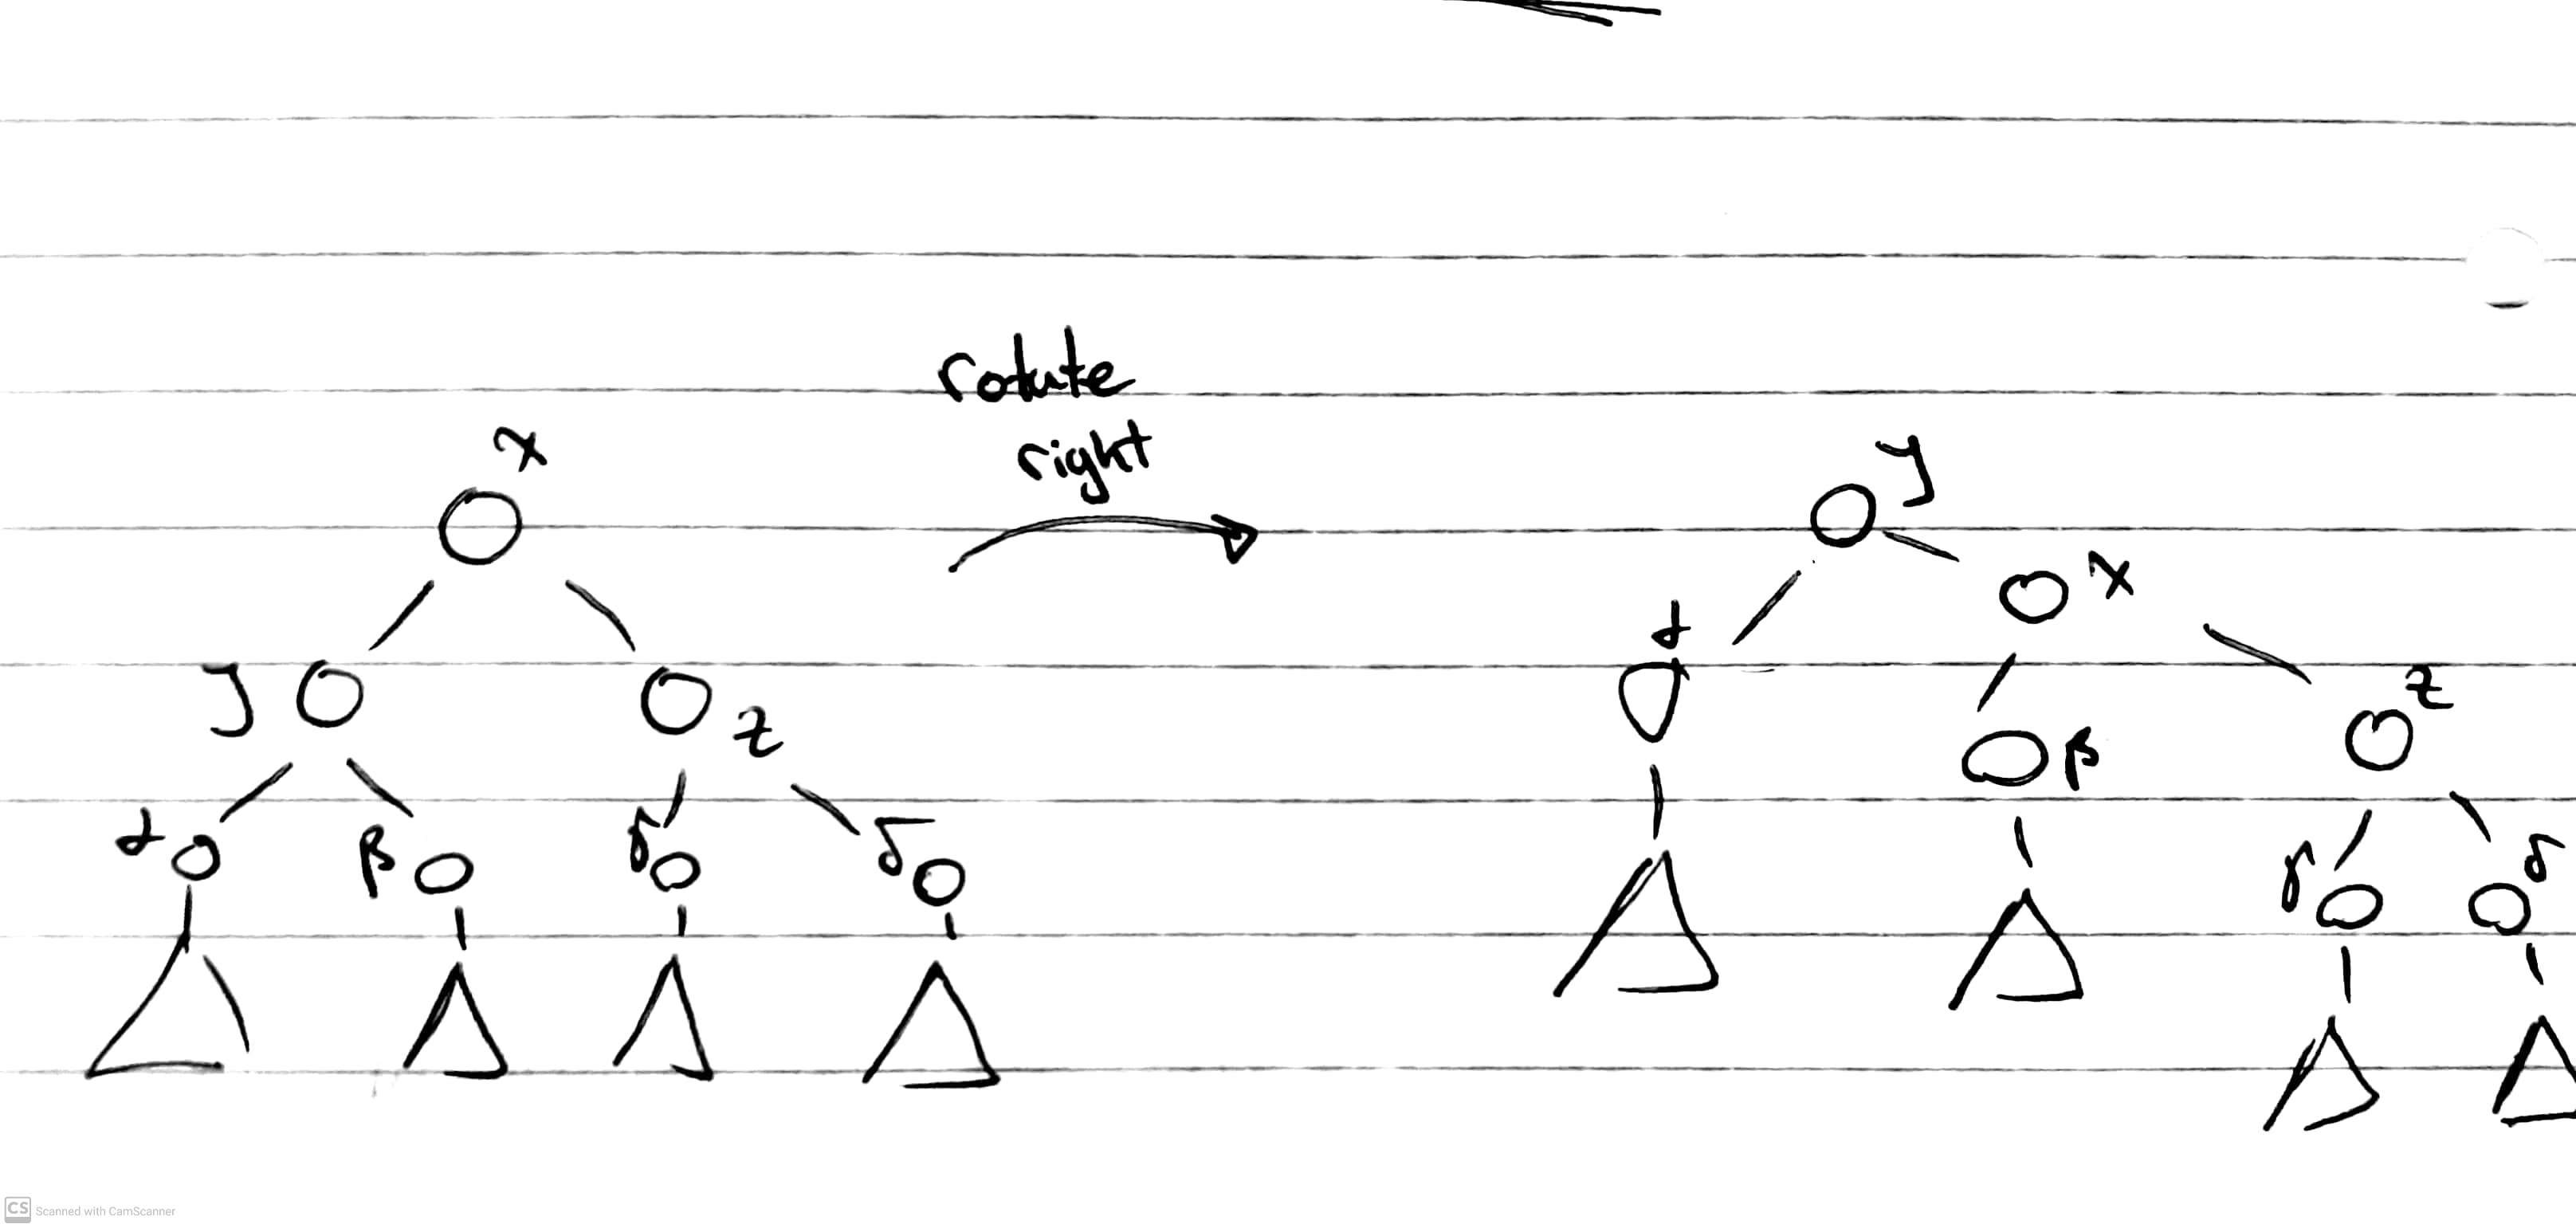 rotate
right
x
y
y
z
α
β
γ
δ
x
α
z
β
γ
δ
CS Scanned with CamScanner